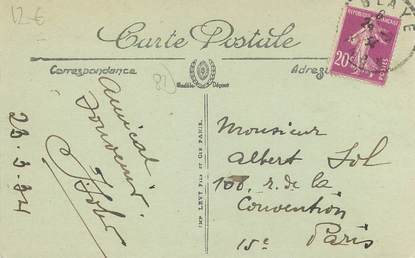 12 €
Carte Postale
Correspondance
Adresse
82
BLAYE
REPUBLIQUE FRANÇAISE
20c
POSTES
Modèle Déposé
Amical
souvenir
23.3.34
IMP. LEVY FILS ET CIE PARIS.
Monsieur
Albert Sol
166, r. de la
Convention
15e Paris